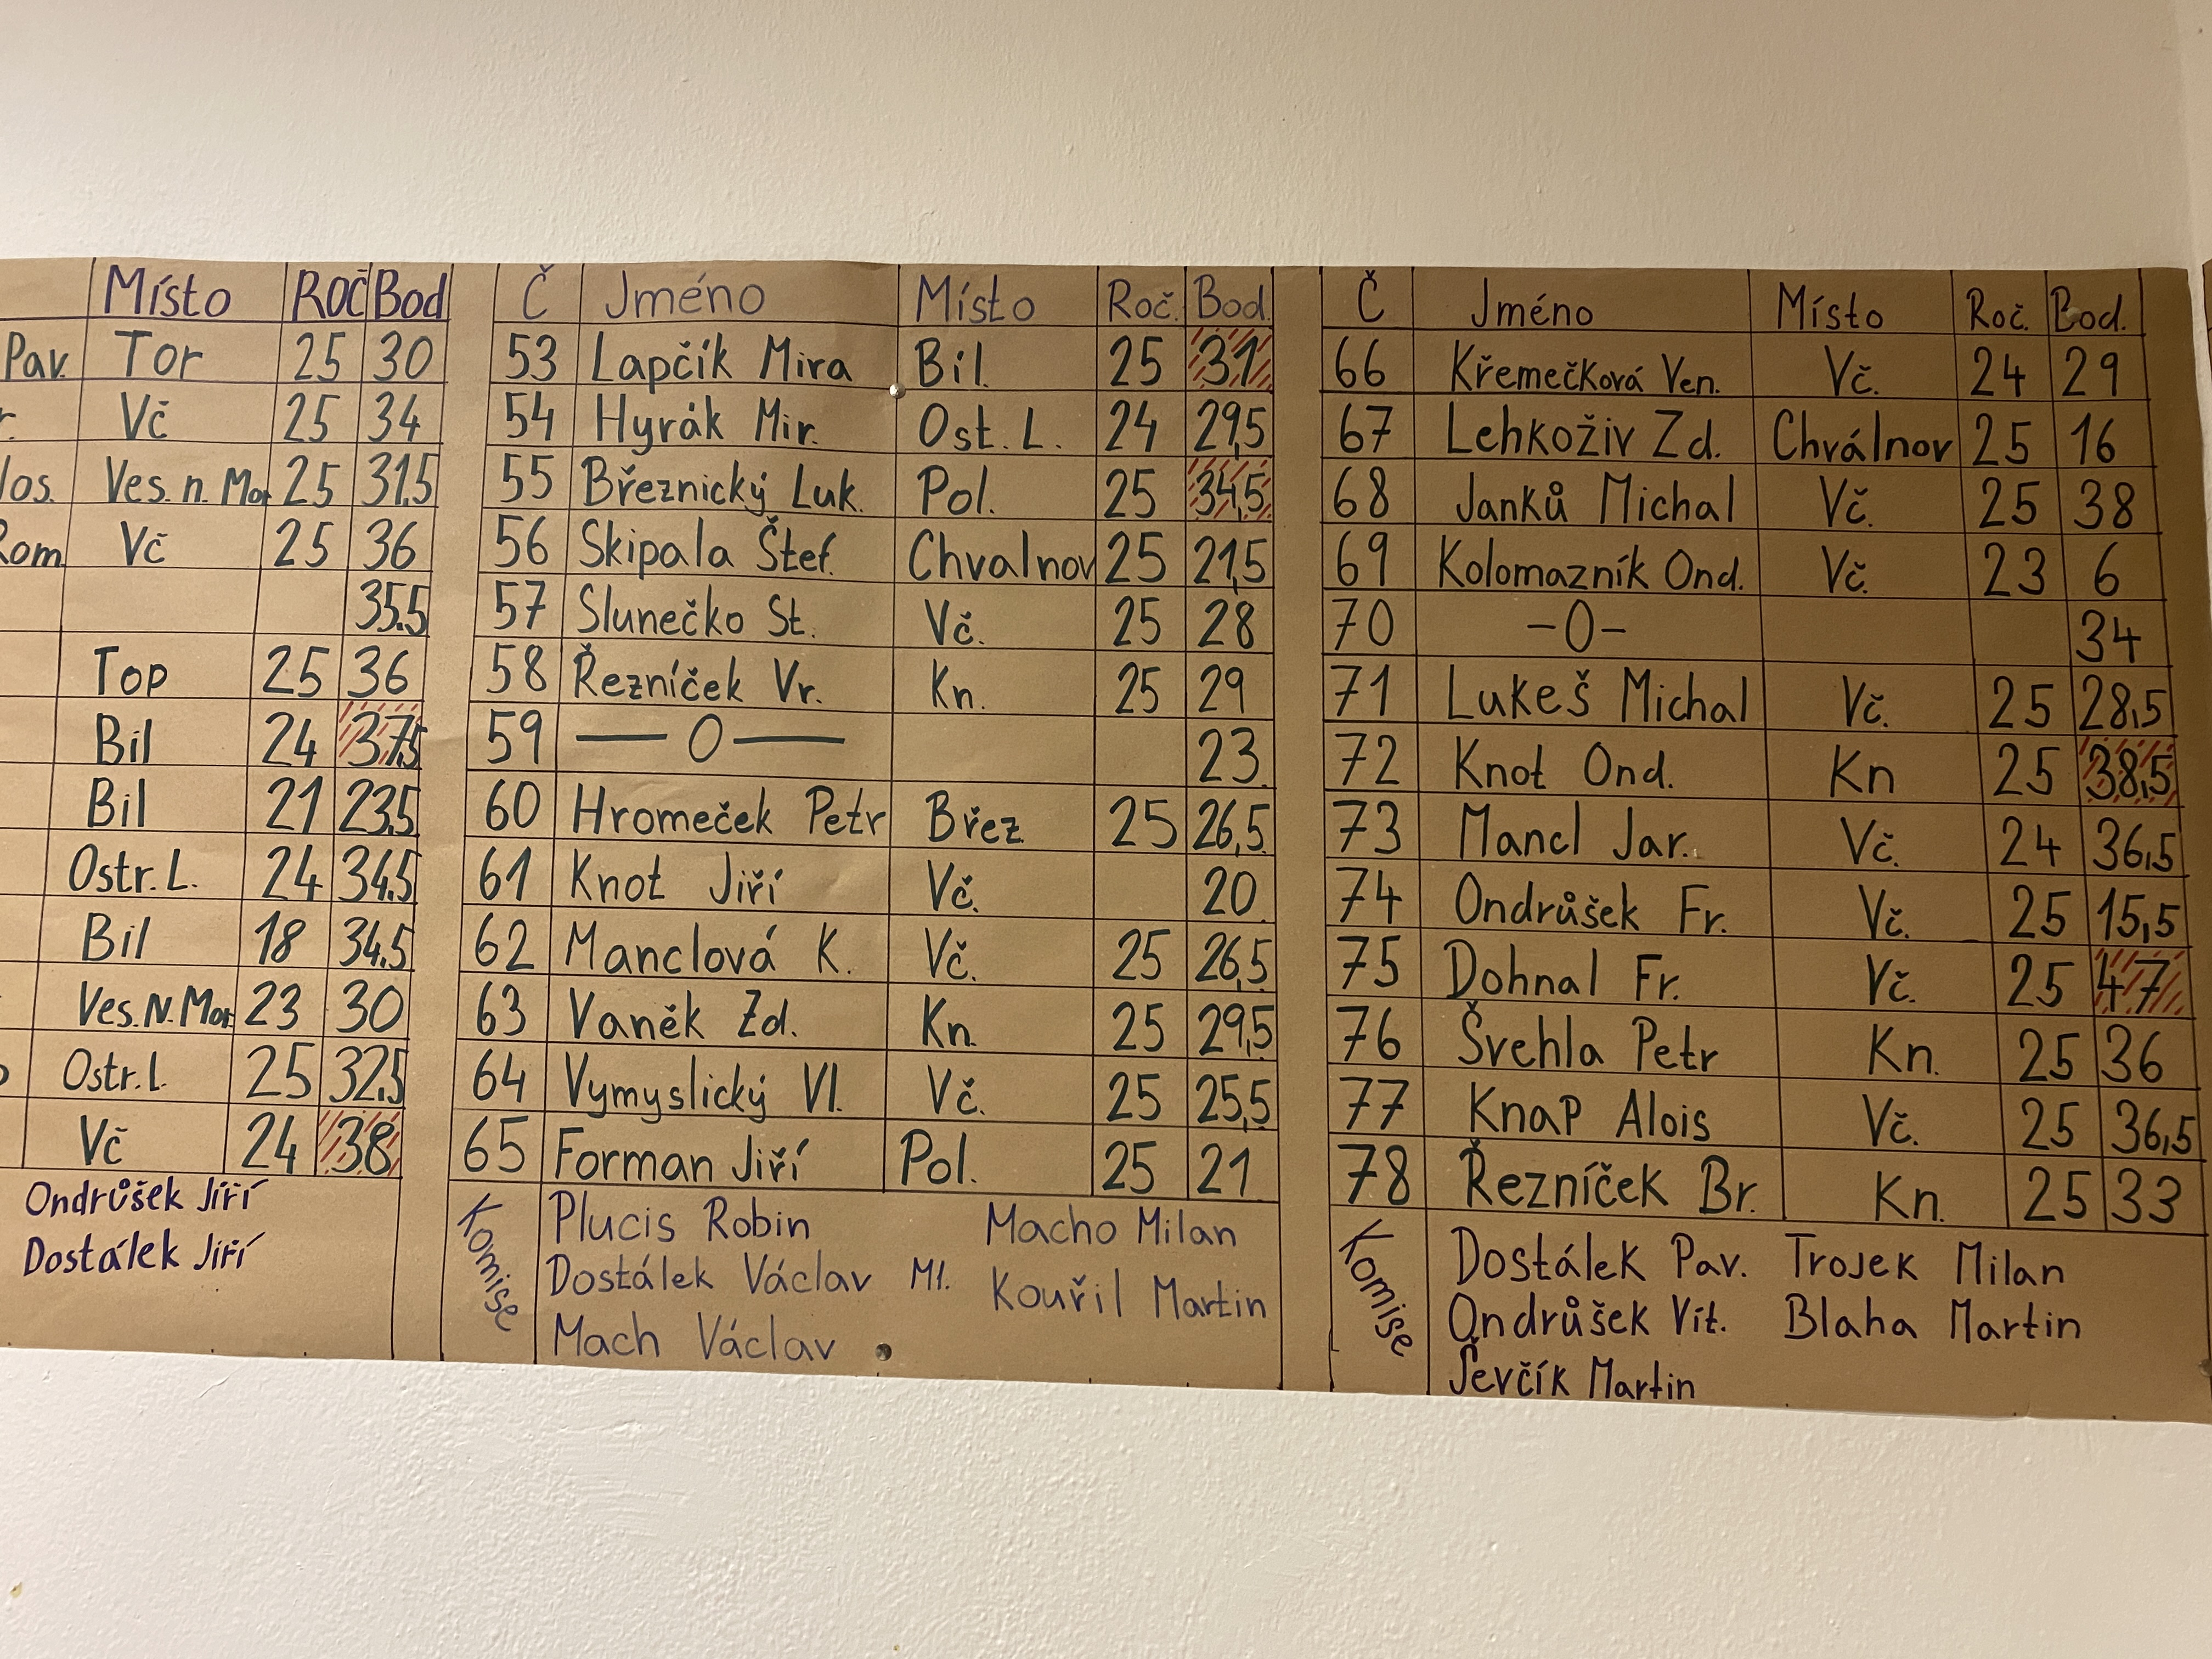 Místo Roč Bod
Pav. Tor 25 30
r. Vč 25 34
los. Ves. n. Mor 25 31,5
Rom. Vč 25 36
35,5
Top 25 36
Bil 24 37,5
Bil 21 23,5
Ostr. L. 24 34,5
Bil 18 34,5
Ves. N. Mor. 23 30
Ostr. L. 25 32,5
Vč 24 38
Ondrůšek Jiří
Dostálek Jiří
Č Jméno Místo Roč. Bod.
53 Lapčík Mira Bil. 25 31
54 Hyrák Mir. Ost. L. 24 29,5
55 Březnický Luk. Pol. 25 34,5
56 Skipala Štef. Chvalnov 25 21,5
57 Slunečko St. Vč. 25 28
58 Řezníček Vr. Kn. 25 29
59 — O — 23
60 Hromeček Petr Břez 25 26,5
61 Knot Jiří Vč. 20
62 Manclová K. Vč. 25 26,5
63 Vaněk Zd. Kn. 25 29,5
64 Vymyslický Vl. Vč. 25 25,5
65 Forman Jiří Pol. 25 21
Komise
Plucis Robin Macho Milan
Dostálek Václav Ml. Kouřil Martin
Mach Václav
Č Jméno Místo Roč. Bod.
66 Křemečková Ven. Vč. 24 29
67 Lehkoživ Zd. Chválnov 25 16
68 Janků Michal Vč. 25 38
69 Kolomazník Ond. Vč. 23 6
70 -O- 34
71 Lukeš Michal Vč. 25 28,5
72 Knot Ond. Kn 25 38,5
73 Mancl Jar. Vč. 24 36,5
74 Ondrůšek Fr. Vč. 25 15,5
75 Dohnal Fr. Vč. 25 47
76 Švehla Petr Kn. 25 36
77 Knap Alois Vč. 25 36,5
78 Řezníček Br. Kn. 25 33
Komise
Dostálek Pav. Trojek Milan
Ondrůšek Vít. Blaha Martin
Ševčík Martin